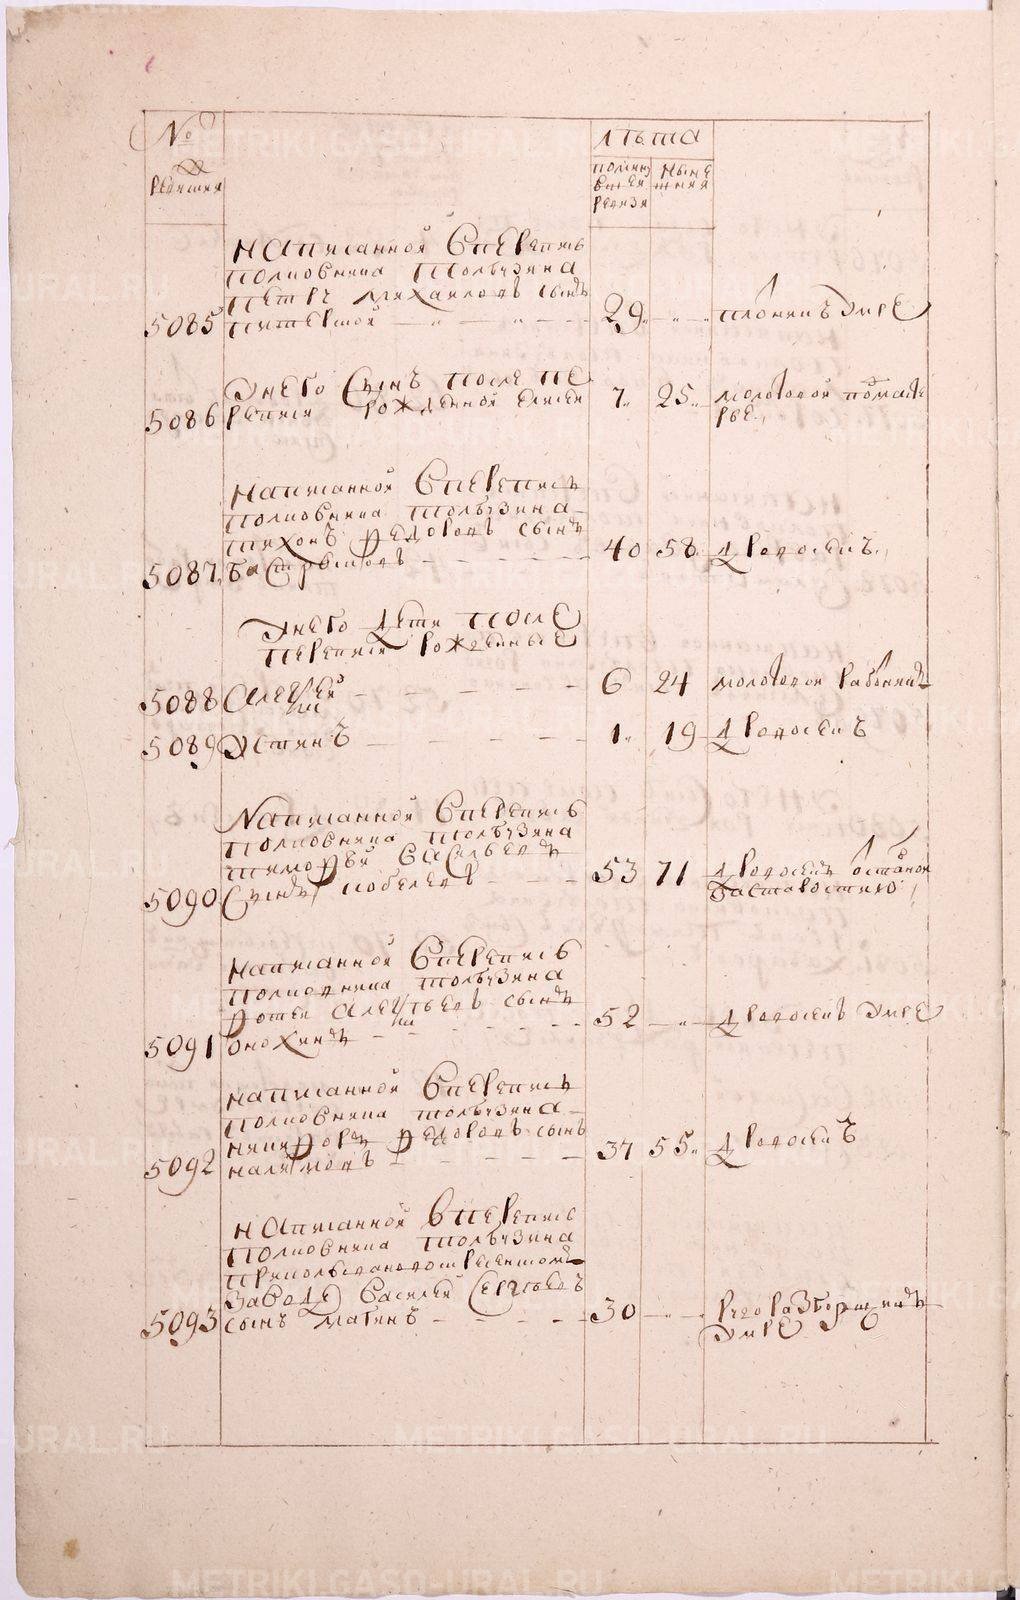 №
ревизии
лѣта
полков
ревизи
нынѣ
шния
написанной вперепись
полковника толбузина
петръ михаиловъ сынъ
5085 29 плотникъ умре
унего сынъ после пе
5086 реписи рожденной 7 25 молотовой помасте
рье
написанной вперепись
полковника толбузина
тихонъ федоровъ сынъ
5087 40 58 дровосекъ
унего дети после
переписи рожденные
5088 алексѣй 6 24 молотовой работникъ
5089 устинъ 1 19 дровосекъ
написанной вперепись
полковника толбузина
тимофѣй васильевъ
5090 сынъ кобелевъ 53 71 дровосекъ оставленъ
застаростию
написанной вперепись
полковника толбузина
фотей алексѣевъ сынъ
5091 онохинъ 52 дровосекъ умре
написанной вперепись
полковника толбузина
никифоръ федоровъ сынъ
5092 37 55 дровосекъ
написанной вперепись
полковника толбузина
заводе василей сергѣевъ
5093 сынъ 30
умре
METRIKI.GASO-URAL.RU